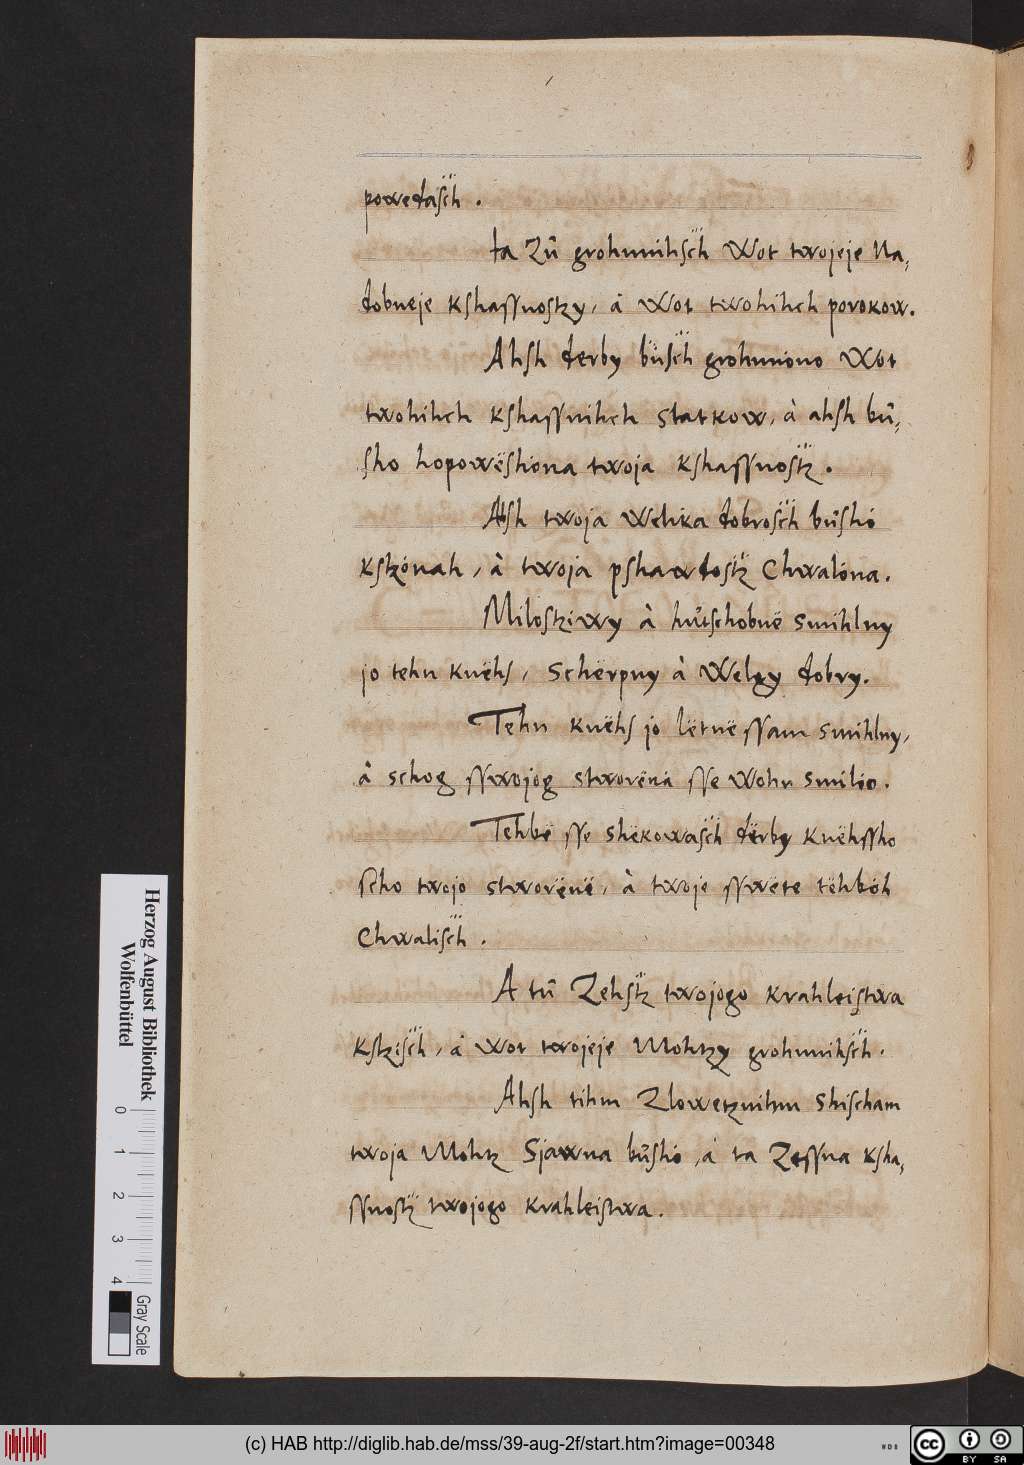 powedasch .
ta Zü grohnunihsch Wot twojeje Na,
dobneje Kshassnostzy, à Wot twohihch porokow.
Ahsh derby büsch grohnuiono Wot
twohihch Kshassnihch statkow, à ahsh bü,
sho hopowëshiona twoja Kshassnostz.
Ahsh twoja Welika dobrosch büshió
Kstzónah, à twoja pshawdostz Chwalóna.
Milostziwy à hütschobnë smihlny
jo tehn Knëhs, Schërpny à Welgy dobry.
Tehn Knëhs jo lëtnë ssam smihlny,
à schog sswojog stworëná sse Wohn smilio.
Tehbë sse shëkowasch dërby Knëhssho
scho twojo stworënë, à twoje sswëte tëhbëh
Chwalisch .
A tü Zehstz twojogo Krahleistwa
Kstzisch, à wot twojeje Mohtzy grohnunihsch.
Ahsh tihm Zlowetznihm Shischam
twoja Mohtz Sjawna büshió, à ta Zessna Ksha,
ssnostz twojogo Krahleistwa.
Herzog August Bibliothek
Wolfenbüttel
0 1 2 3 4
Gray Scale
(c) HAB http://diglib.hab.de/mss/39-aug-2f/start.htm?image=00348
WDB
cc BY SA